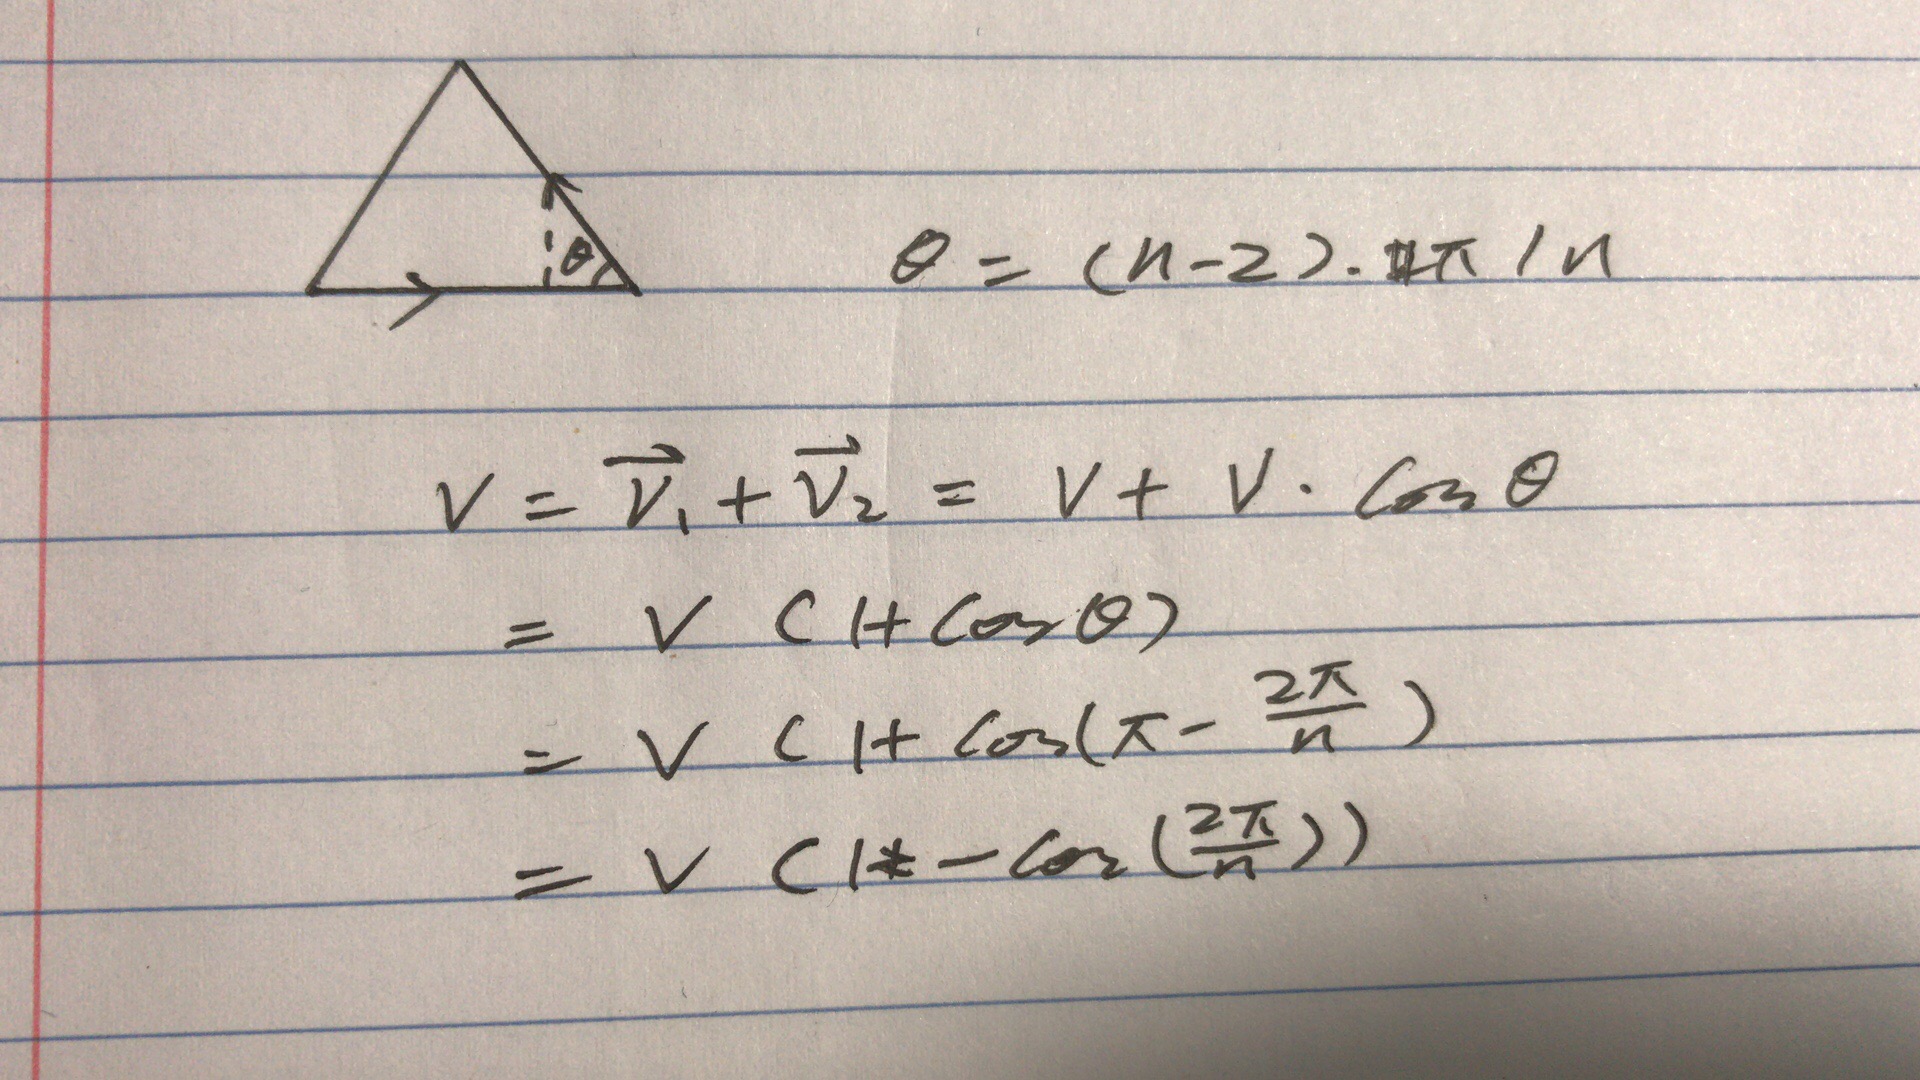 θ
θ = (n-2)·π/n
V = V⃗₁ + V⃗₂ = V + V · cos θ
= V (1 + cos θ)
= V (1 + cos(π - 2π/n)
= V (1 - cos(2π/n))